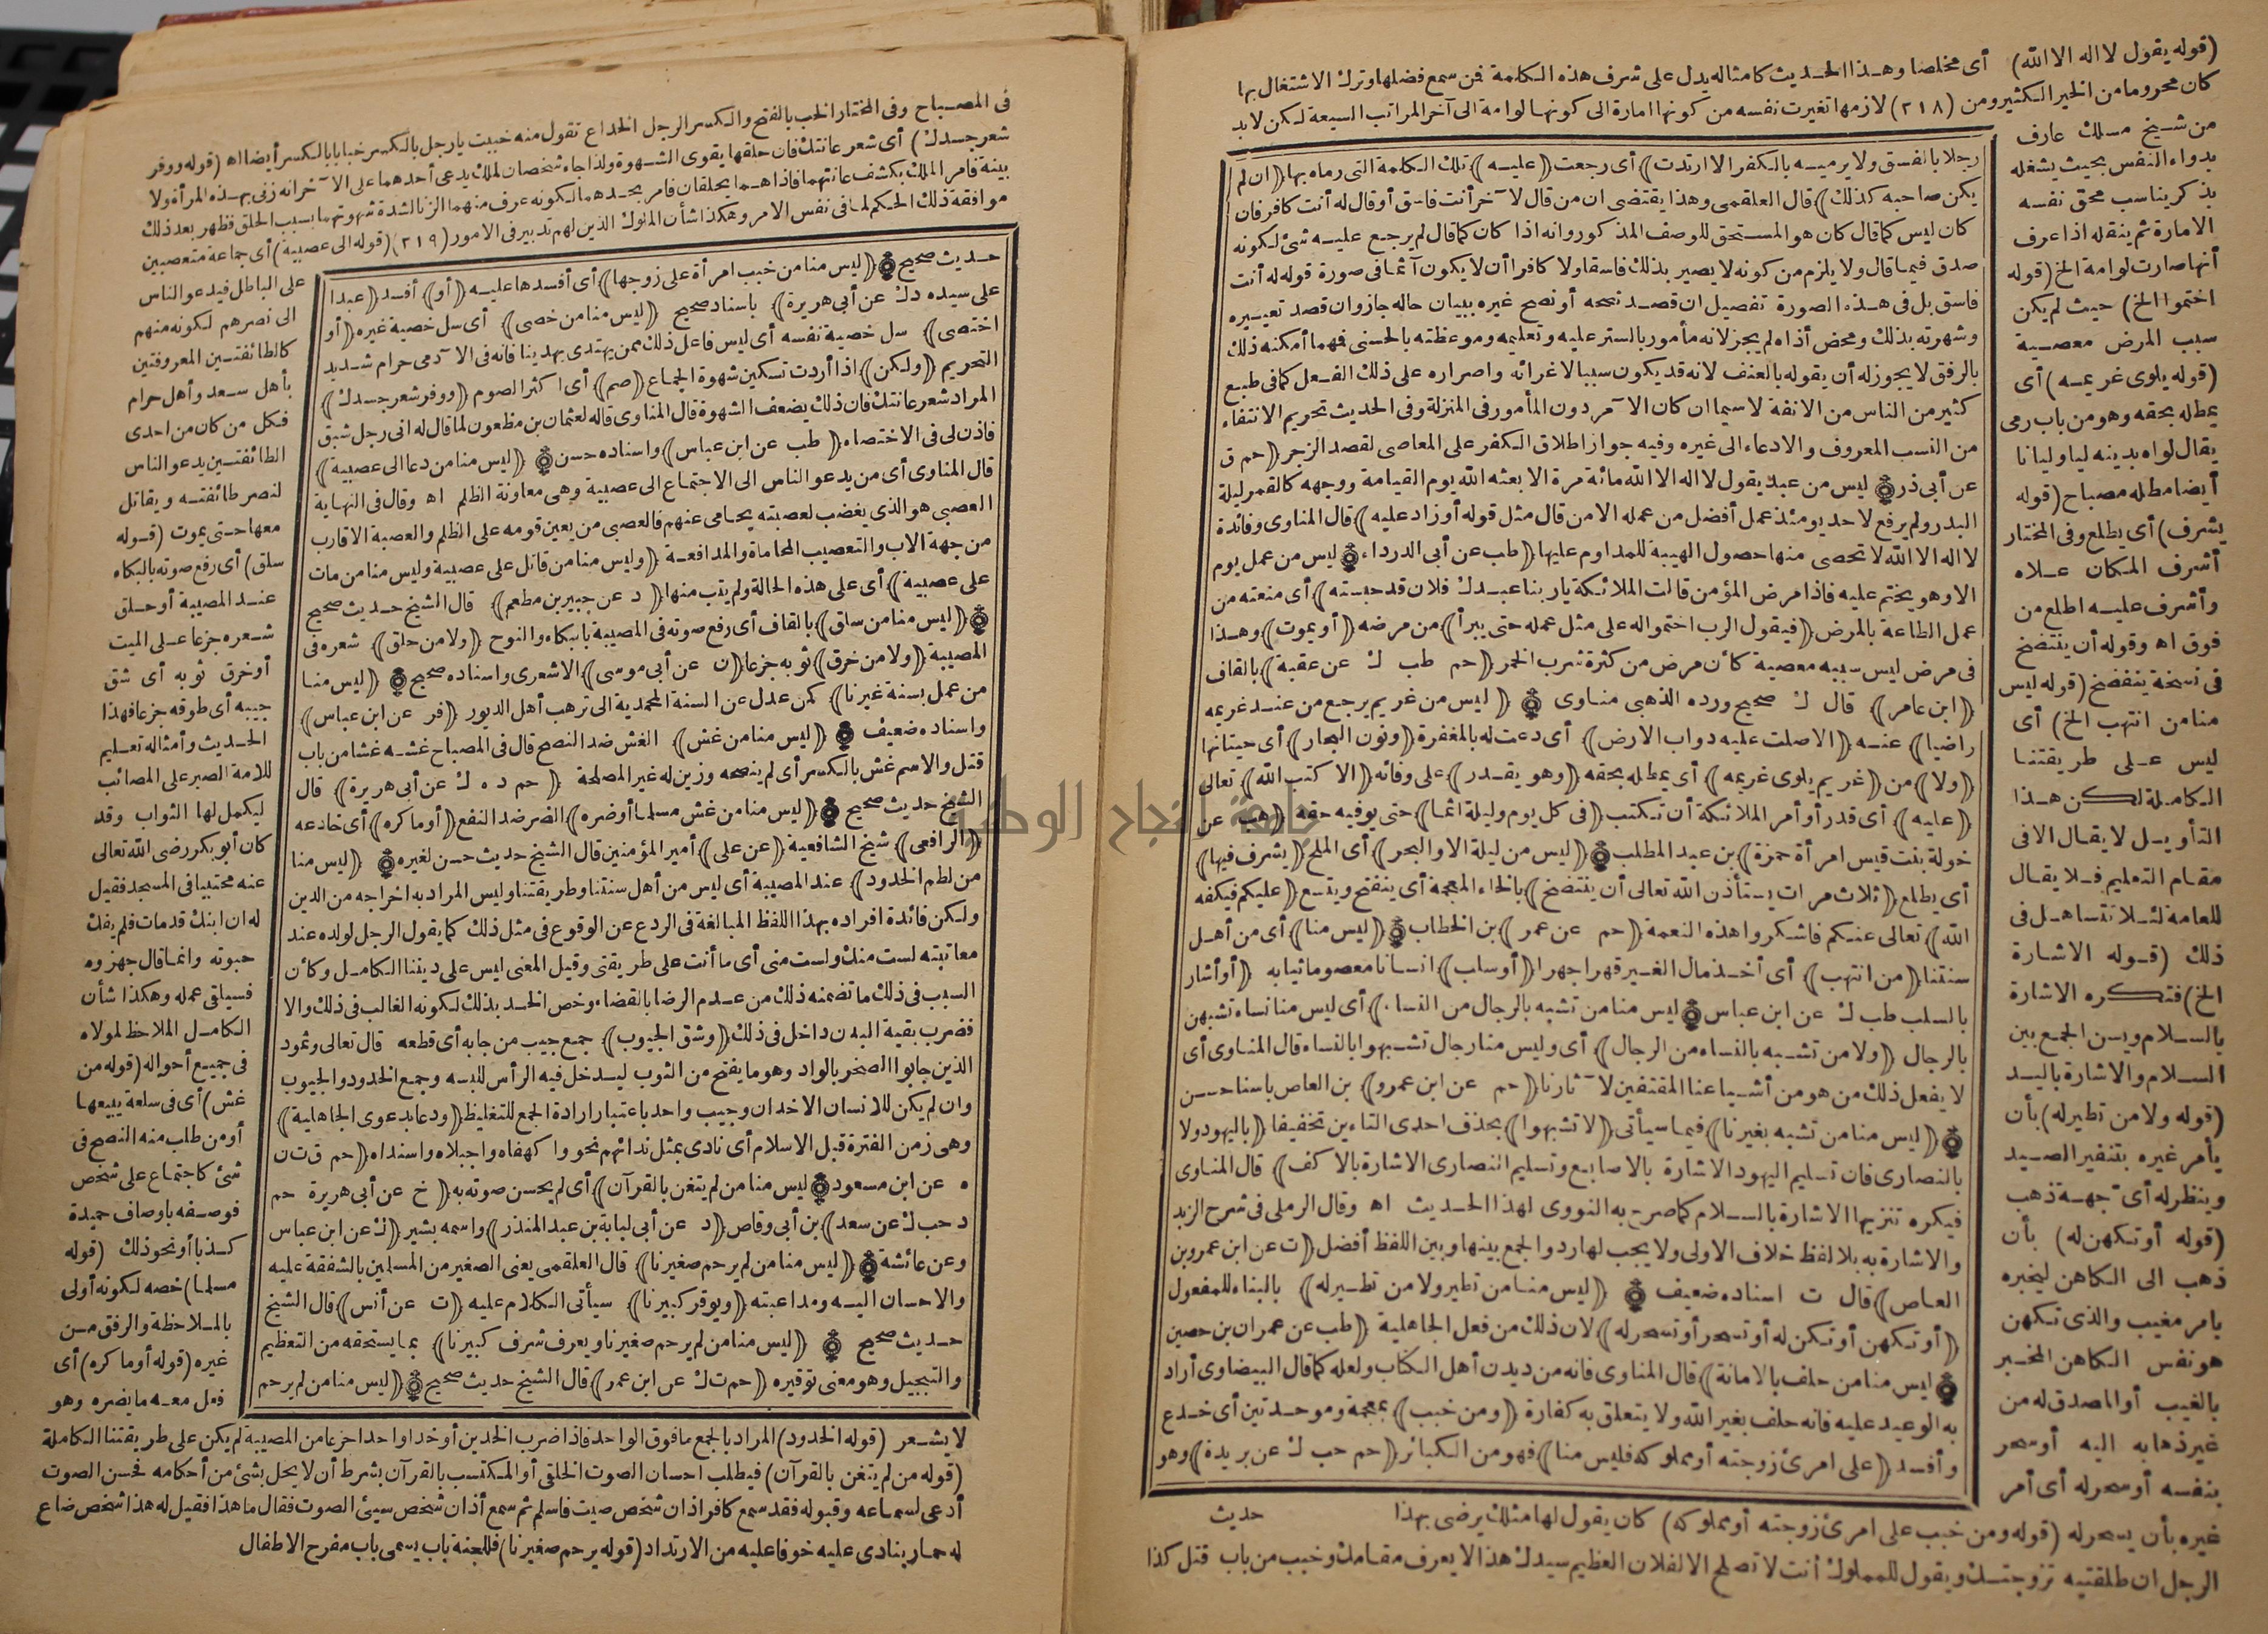 (قوله يقول لا اله الا الله) أى مخلصا وهذا الحديث كامثاله يدل على شرف هذه الكلمة فمن سمع فضلها وترك الاشتغال بها
كان محروما من الخير الكثير ومن (٢١٨) لازمها تغيرت نفسه من كونها امارة الى كونها لوامة الى آخر المراتب السبعة لكن لا بد
من شيخ مسلك عارف
بدواء النفس بحيث يشغله
بذكر يناسب محق نفسه
الامارة ثم ينقله اذا عرف
أنها صارت لوامة الخ (قوله
اختموا الخ) حيث لم يكن
سبب المرض معصية
(قوله يلوى غريمه) أى
يمطله بحقه وهو من باب رمى
يقال لواه بدينه ليا وليانا
أيضا مطله مصباح (قوله
يشرف) أى يطلع وفى المختار
أشرف المكان علاه
وأشرف عليه اطلع من
فوق اه وقوله أن ينتضخ
فى نسخة ينفضخ (قوله ليس
منا من انتهب الخ) أى
ليس على طريقتنا
الكاملة لكن هذا
التأويل لا يقال الا فى
مقام التعليم فلا يقال
للعامة لئلا تتساهل فى
ذلك (قوله الاشارة
الخ) فتكره الاشارة
بالسلام ويسن الجمع بين
السلام والاشارة باليد
(قوله ولا من تطير له) بأن
يأمر غيره بتنفير الصيد
وينظر له أى جهة ذهب
(قوله أو تكهن له) بأن
ذهب الى الكاهن ليخبره
بامر مغيب والذى تكهن
هو نفس الكاهن المخبر
بالغيب أو المصدق له من
غير ذهابه اليه أو سحر
بنفسه أو سحر له أى أمر
رجلا بالفسق ولا يرميه بالكفر الا ارتدت) أى رجعت (عليه) تلك الكلمة التى رماه بها (ان لم
يكن صاحبه كذلك) قال العلقمى وهذا يقتضى ان من قال لآخر أنت فاسق أو قال له أنت كافر فان
كان ليس كما قال كان هو المستحق للوصف المذكور وانه اذا كان كما قال لم يرجع عليه شئ لكونه
صدق فيما قال ولا يلزم من كونه لا يصير بذلك فاسقا ولا كافرا أن لا يكون آثما فى صورة قوله له أنت
فاسق بل فى هذه الصورة تفصيل ان قصد نصحه أو نصح غيره ببيان حاله جاز وان قصد تعييره
وشهرته بذلك ومحض أذاه لم يجز لانه مأمور بالستر عليه وتعليمه وموعظته بالحسنى فهما أمكنه ذلك
بالرفق لا يجوز له أن يقوله بالعنف لانه قد يكون سببا لاغرائه واصراره على ذلك الفعل كما فى طبع
كثير من الناس من الانفة لا سيما ان كان الآمر دون المأمور فى المنزلة وفى الحديث تحريم الانتفاء
من النسب المعروف والادعاء الى غيره وفيه جواز اطلاق الكفر على المعاصى لقصد الزجر (حم ق
عن أبى ذر) ليس من عبد يقول لا اله الا الله مائة مرة الا بعثه الله يوم القيامة ووجهه كالقمر ليلة
البدر ولم يرفع لاحد يومئذ عمل أفضل من عمله الا من قال مثل قوله أو زاد عليه) قال المناوى وفائدة
لا اله الا الله لا تحصى منها حصول الهيبة للمداوم عليها (طب عن أبى الدرداء) ليس من عمل يوم
الا وهو يختم عليه فاذا مرض المؤمن قالت الملائكة يا ربنا عبدك فلان قد حبسته) أى منعته من
عمل الطاعة بالمرض (فيقول الرب اختموا له على مثل عمله حتى يبرأ) من مرضه (أو يموت) وهذا
فى مرض ليس سببه معصية كأن مرض من كثرة شرب الخمر (حم طب ك عن عقبة) بالقاف
(ابن عامر) قال ك صحيح ورده الذهبى مناوى (ليس من غريم يرجع من عند غريمه
راضيا) عنه (الا صلت عليه دواب الارض) أى دعت له بالمغفرة (ونون البحار) أى حيتانها
(ولا) من (غريم يلوى غريمه) أى يمطله بحقه (وهو يقدر) على وفائه (الا كتب الله) تعالى
(عليه) أى قدر أو أمر الملائكة أن تكتب (فى كل يوم وليلة اثما) حتى يوفيه حقه (هب عن
خولة بنت قيس امرأة حمزة) بن عبد المطلب (ليس من ليلة الا والبحر) أى الملح (يشرف فيها)
أى يطلع (ثلاث مرات يستأذن الله تعالى أن ينتضخ) بالخاء المعجمة أى ينفتح ويتسع (عليكم فيكفه
الله) تعالى عنكم فاشكروا هذه النعمة (حم عن عمر) بن الخطاب (ليس منا) أى من أهل
سنتنا (من انتهب) أى أخذ مال الغير قهرا جهرا (أو سلب) انسانا معصوما ثيابه (أو أشار
بالسلب طب ك عن ابن عباس) ليس منا من تشبه بالرجال من النساء) أى ليس منا نساء تشبهن
بالرجال (ولا من تشبه بالنساء من الرجال) أى وليس منا رجال تشبهوا بالنساء قال المناوى أى
لا يفعل ذلك من هو من أشياعنا المقتفين لآثارنا (حم عن ابن عمرو) بن العاص باسناد حسن
(ليس منا من تشبه بغيرنا) فيما سيأتى (لا تشبهوا) بحذف احدى التاءين تخفيفا (باليهود ولا
بالنصارى فان تسليم اليهود الاشارة بالاصابع وتسليم النصارى الاشارة بالاكف) قال المناوى
فيكره تنزيها الاشارة بالسلام كما صرح به النووى لهذا الحديث اه وقال الرملى فى شرح الزبد
والاشارة به بلا لفظ خلاف الاولى ولا يجب لها رد والجمع بينها وبين اللفظ أفضل (ت عن ابن عمرو بن
العاص) قال ت اسناده ضعيف (ليس منا من تطير ولا من تطير له) بالبناء للمفعول
(أو تكهن أو تكهن له أو تسحر أو تسحر له) لان ذلك من فعل الجاهلية (طب عن عمران بن حصين
ليس منا من حلف بالامانة) قال المناوى فانه من ديدن أهل الكتاب ولعله كما قال البيضاوى أراد
به الوعيد عليه فانه حلف بغير الله ولا يتعلق به كفارة (ومن خبب) بمعجمة وموحدتين أى خدع
وأفسد (على امرئ زوجته أو مملوكه فليس منا) فهو من الكبائر (حم حب ك عن بريدة) وهو
غيره بأن يسحر له (قوله ومن خبب على امرئ زوجته أو مملوكه) كان يقول لها مثلك يرضى بهذا حديث
الرجل ان طلقتيه تزوجتك ويقول للمملوك أنت لا تصلح الا لفلان العظيم سيدك هذا لا يعرف مقامك وخبب من باب قتل كذا
فى المصباح وفى المختار الخب بالفتح والكسر الرجل الخداع تقول منه خببت يا رجل بالكسر خبابا بالكسر أيضا اه (قوله ووفر
شعر جسدك) أى شعر عانتك فان حلقها يقوى الشهوة ولذا جاء شخصان لملك يدعى أحدهما على الآخر انه زنى بهذه المرأة ولا
بينة فامر الملك بكشف عانتهما فاذا هما يحلقان فامر بحدهما لكونه عرف منهما الزنا لشدة شهوتهما بسبب الحلق فظهر بعد ذلك
موافقة ذلك الحكم لما فى نفس الامر وهكذا شأن الملوك الذين لهم تدبير فى الامور (٢١٩) (قوله الى عصبية) أى جماعة متعصبين
على الباطل فيدعو الناس
الى نصرهم لكونه منهم
كالطائفتين المعروفتين
بأهل سعد وأهل حرام
فكل من كان من احدى
الطائفتين يدعو الناس
لنصر طائفته ويقاتل
معها حتى يموت (قوله
سلق) أى رفع صوته بالبكاء
عند المصيبة أو حلق
شعره جزعا على الميت
أو خرق ثوبه أى شق
جيبه أى طوقه جزعا فهذا
الحديث وأمثاله تعليم
للامة الصبر على المصائب
ليكمل لها الثواب وقد
كان أبو بكر رضى الله تعالى
عنه محتبيا فى المسجد فقيل
له ان ابنك قد مات فلم يفك
حبوته وانما قال جهزوه
فسيلقى عمله وهكذا شأن
الكامل الملاحظ لمولاه
فى جميع أحواله (قوله من
غش) أى فى سلعة يبيعها
أو من طلب منه النصح فى
شئ كاجتماع على شخص
فوصفه باوصاف حميدة
كذبا أو نحو ذلك (قوله
مسلما) خصه لكونه أولى
بالملاحظة والرفق من
غيره (قوله أو ما كره) أى
فعل معه ما يضره وهو
حديث صحيح (ليس منا من خبب امرأة على زوجها) أى أفسدها عليه (أو) أفسد (عبدا
على سيده دك عن أبى هريرة) باسناد صحيح (ليس منا من خصى) أى سل خصية غيره (أو
اختصى) سل خصية نفسه أى ليس فاعل ذلك ممن يهتدى بهدينا فانه فى الآدمى حرام شديد
التحريم (ولكن) اذا أردت تسكين شهوة الجماع (صم) أى اكثر الصوم (ووفر شعر جسدك)
المراد شعر عانتك فان ذلك يضعف الشهوة قال المناوى قاله لعثمان بن مظعون لما قال له انى رجل شبق
فاذن لى فى الاختصاء (طب عن ابن عباس) واسناده حسن (ليس منا من دعا الى عصبية)
قال المناوى أى من يدعو الناس الى الاجتماع الى عصبية وهى معاونة الظلم اه وقال فى النهاية
العصبى هو الذى يغضب لعصبته يحامى عنهم فالعصبى من يعين قومه على الظلم والعصبة الاقارب
من جهة الاب والتعصيب المحاماة والمدافعة (وليس منا من قاتل على عصبية وليس منا من مات
على عصبية) أى على هذه الحالة ولم يتب منها (د عن جبير بن مطعم) قال الشيخ حديث صحيح
(ليس منا من سلق) بالقاف أى رفع صوته فى المصيبة بالبكاء والنوح (ولا من حلق) شعره فى
المصيبة (ولا من خرق) ثوبه جزعا (ن عن أبى موسى) الاشعرى واسناده صحيح (ليس منا
من عمل بسنة غيرنا) كمن عدل عن السنة المحمدية الى ترهب أهل الديور (فر عن ابن عباس)
واسناده ضعيف (ليس منا من غش) الغش ضد النصح قال فى المصباح غشه غشا من باب
قتل والاسم غش بالكسر أى لم ينصحه وزين له غير المصلحة (حم د ه ك عن أبى هريرة) قال
الشيخ حديث صحيح (ليس منا من غش مسلما أو ضره) الضر ضد النفع (أو ماكره) أى خادعه
(الرافعى) شيخ الشافعية (عن على) أمير المؤمنين قال الشيخ حديث حسن لغيره (ليس منا
من لطم الخدود) عند المصيبة أى ليس من أهل سنتنا وطريقتنا وليس المراد به اخراجه من الدين
ولكن فائدة افراده بهذا اللفظ المبالغة فى الردع عن الوقوع فى مثل ذلك كما يقول الرجل لولده عند
معاتبته لست منك ولست منى أى ما أنت على طريقتى وقيل المعنى ليس على ديننا الكامل وكأن
السبب فى ذلك ما تضمنه ذلك من عدم الرضا بالقضاء وخص الخد بذلك لكونه الغالب فى ذلك والا
فضرب بقية البدن داخل فى ذلك (وشق الجيوب) جمع جيب من جابه أى قطعه قال تعالى وثمود
الذين جابوا الصخر بالواد وهو ما يفتح من الثوب ليدخل فيه الرأس للبسه وجمع الخدود والجيوب
وان لم يكن للانسان الا خدان وجيب واحد باعتبار ارادة الجمع للتغليظ (ودعا بدعوى الجاهلية)
وهى زمن الفترة قبل الاسلام أى نادى بمثل ندائهم نحو واكهفاه واجبلاه واسنداه (حم ق ت ن
ه عن ابن مسعود) ليس منا من لم يتغن بالقرآن) أى لم يحسن صوته به (خ عن أبى هريرة حم
د حب ك عن سعد) بن أبى وقاص (د عن أبى لبابة بن عبد المنذر) واسمه بشير (ك عن ابن عباس
وعن عائشة) (ليس منا من لم يرحم صغيرنا) قال العلقمى يعنى الصغير من المسلمين بالشفقة عليه
والاحسان اليه ومداعبته (ويوقر كبيرنا) سيأتى الكلام عليه (ت عن أنس) قال الشيخ
حديث صحيح (ليس منا من لم يرحم صغيرنا ويعرف شرف كبيرنا) بما يستحقه من التعظيم
والتبجيل وهو معنى توقيره (حم ت ك عن ابن عمر) قال الشيخ حديث صحيح (ليس منا من لم يرحم
لا يشعر (قوله الخدود) المراد بالجمع ما فوق الواحد فاذا ضرب الخدين أو خدا واحدا جزعا من المصيبة لم يكن على طريقتنا الكاملة
(قوله من لم يتغن بالقرآن) فيطلب احسان الصوت الخلقى أو المكتسب بالقرآن بشرط أن لا يخل بشئ من أحكامه فحسن الصوت
أدعى لسماعه وقبوله فقد سمع كافر اذان شخص صيت فاسلم ثم سمع أذان شخص سيئ الصوت فقال ما هذا فقيل له هذا شخص ضاع
له حمار ينادى عليه خوفا عليه من الارتداد (قوله يرحم صغيرنا) فللجنة باب يسمى باب مفرح الاطفال
جامعة النجاح الوطنية